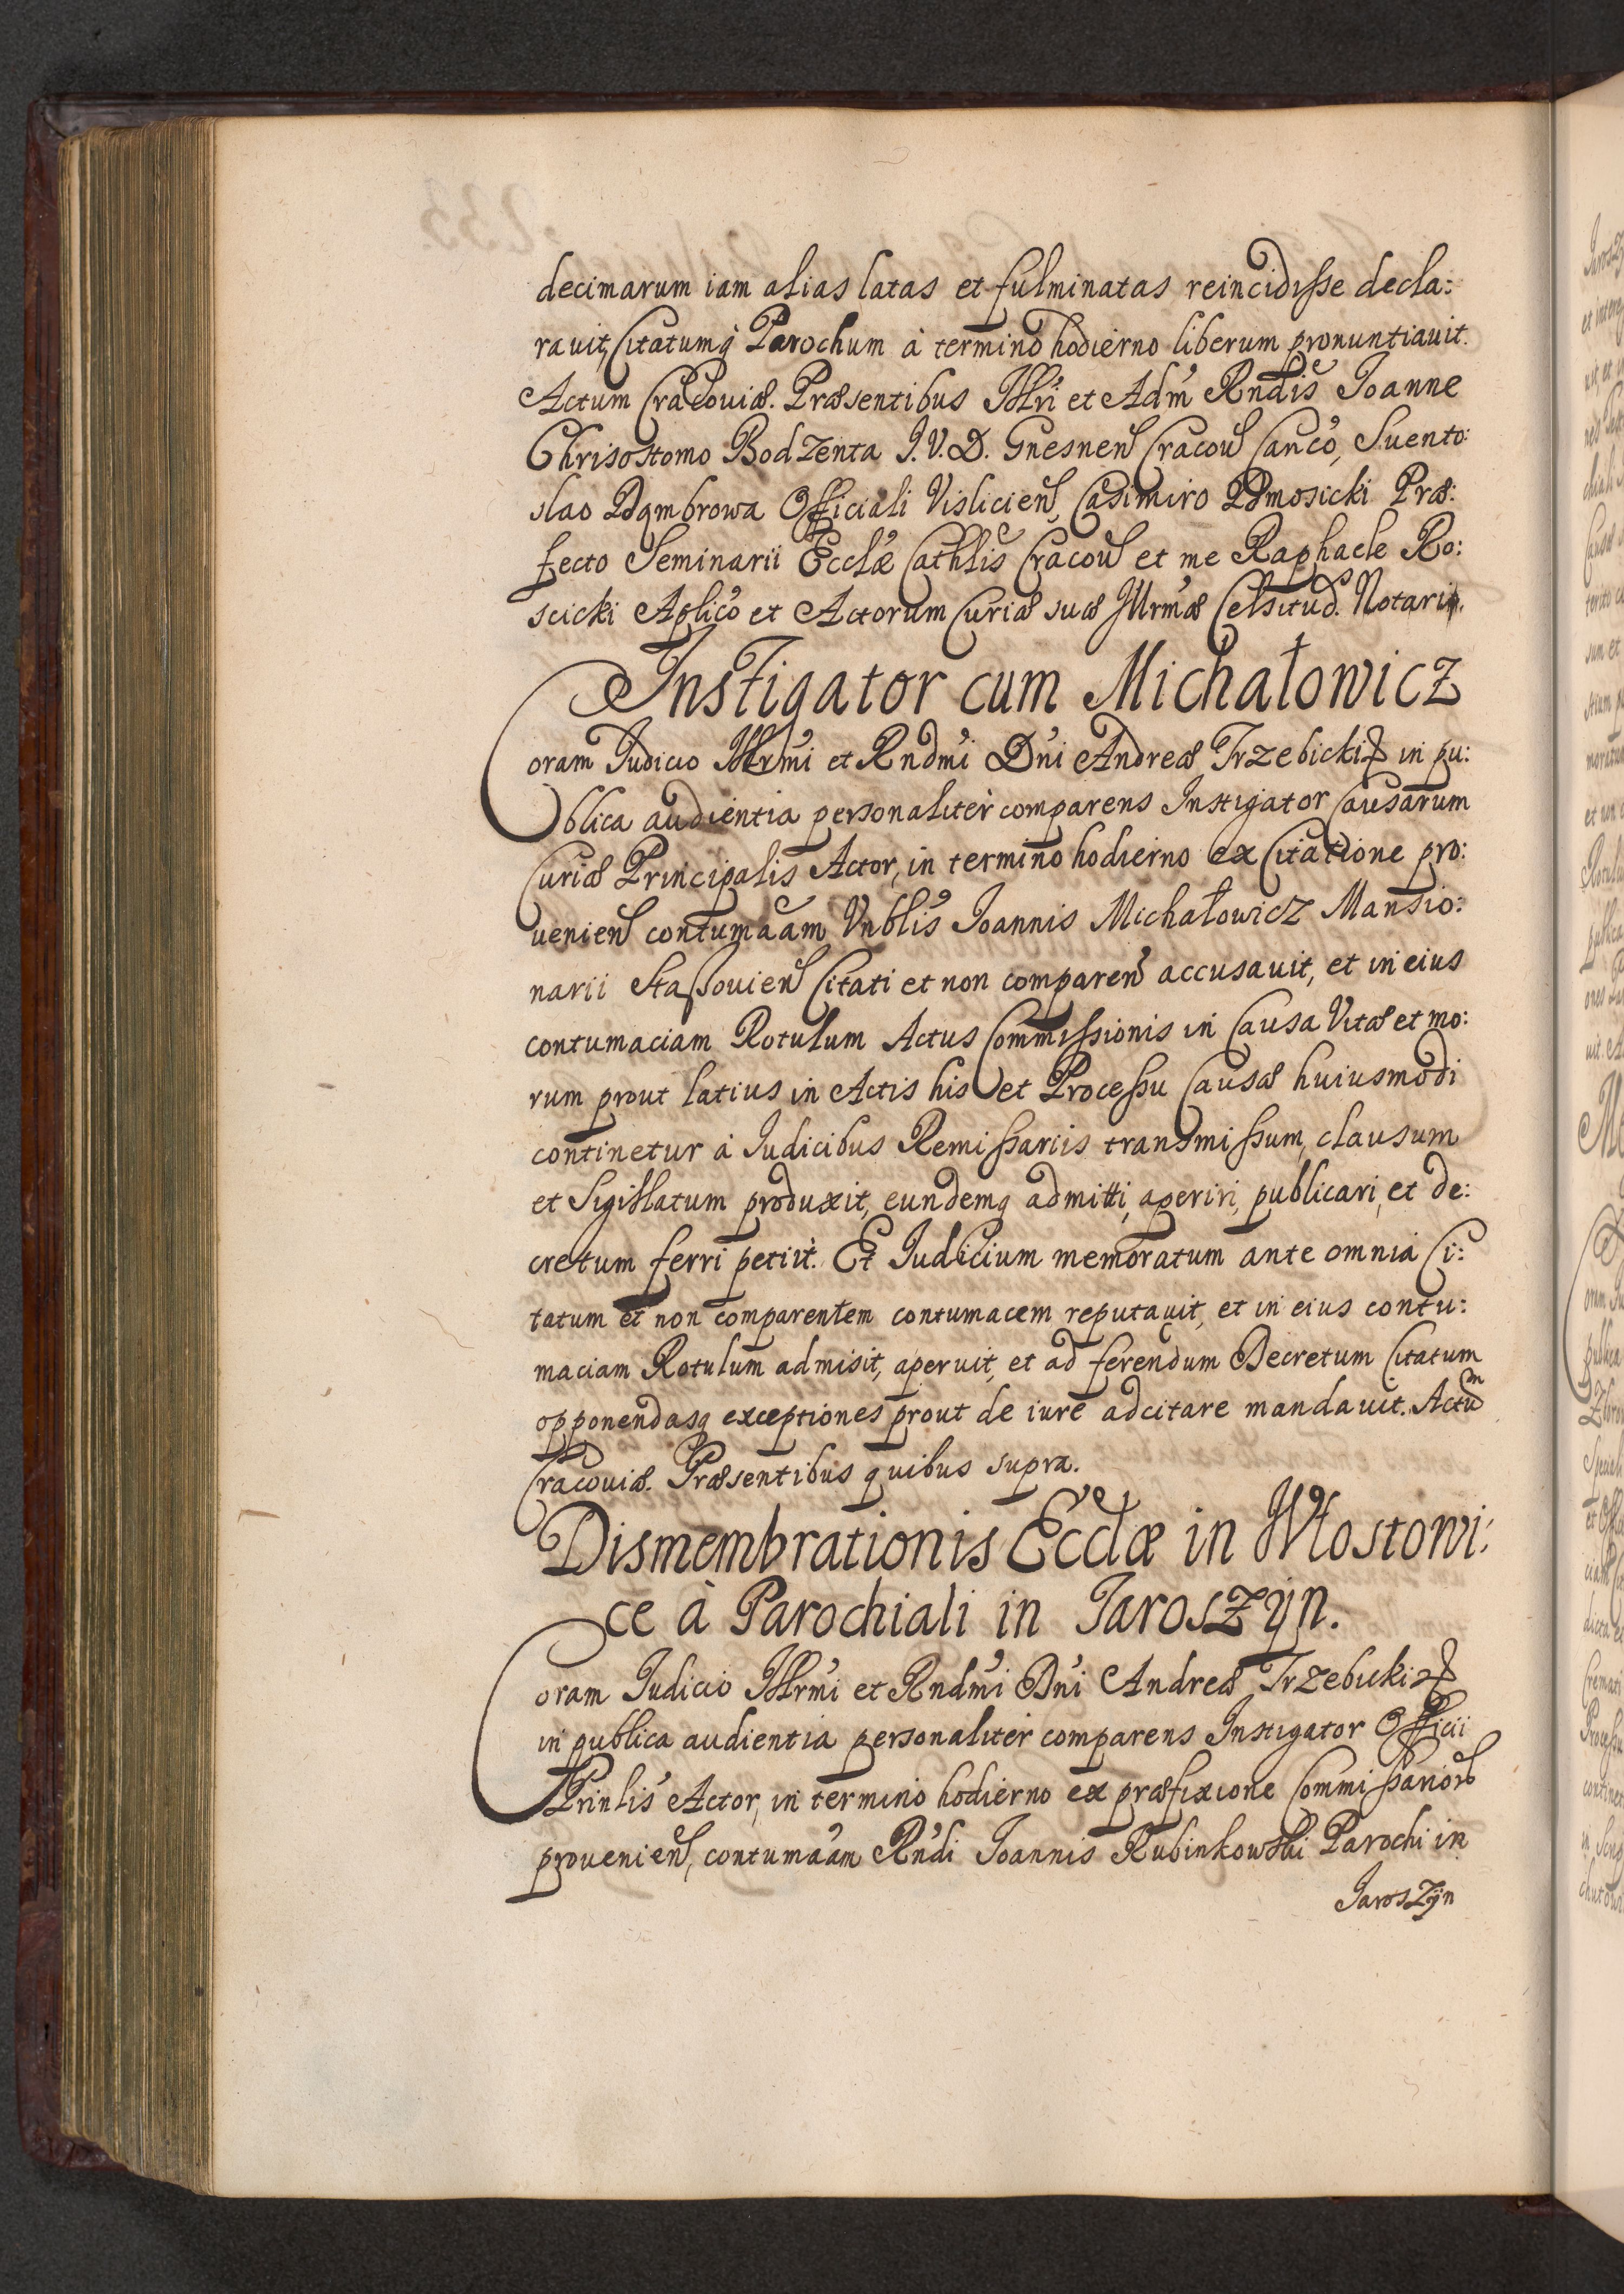 decimarum iam alias latas et fulminatas reincidisse decla:
rauit, Citatumq̀ Parochum à termino hodierno liberum pronuntiauit.
Actum Cracoviæ. Præsentibus Illri et Adm̃ Rndis Joanne
Chrisostomo Bodzenta J.V.D. Gnesnen Cracou Canco, Suento:
slao Dąmbrowa Officiali Vislicien, Casimiro Domosicki Præ:
fecto Seminarii Ecclæ Cathlis Cracou et me Raphaele Ro:
scicki Aplico et Actorum Curiæ suæ Illrmæ Celsitud. Notario.
Instigator cum Michałowicz
Coram Judicio Illrmi et Rndmi Dni Andreæ Trzebicki in pu:
blica audientia personaliter comparens Instigator Causarum
Curiæ Principalis Actor, in termino hodierno ex Citatione pro:
uenien contumaam Vnblis Joannis Michałowicz Mansio:
narii Stassouien Citati et non comparen accusauit, et in eius
contumaciam Rotulum Actus Commissionis in Causa Vitæ et mo:
rum prout latius in Actis his et Processu Causæ huiusmodi
continetur à Judicibus Remissariis transmissum, clausum
et Sigillatum produxit, eundemq admitti, aperiri, publicari, et de:
cretum ferri petiit. Et Judicium memoratum ante omnia Ci:
tatum et non comparentem contumacem reputauit, et in eius contu:
maciam Rotulum admisit, aperuit, et ad ferendum Decretum Citatum
opponendasq exceptiones prout de iure adcitare mandauit. Actum
Cracouiæ. Præsentibus quibus supra.
Dismembrationis Ecclæ in Włostowi:
ce à Parochiali in Jaroszÿn.
Coram Judicio Illrmi et Rndmi Dni Andreæ Trzebicki
in publica audientia personaliter comparens Instigator Officii
Prinlis Actor, in termino hodierno ex præfixione Commissarior
prouenien, contumaam Rndi Joannis Rubinkowski Parochi in
Jaroszÿn